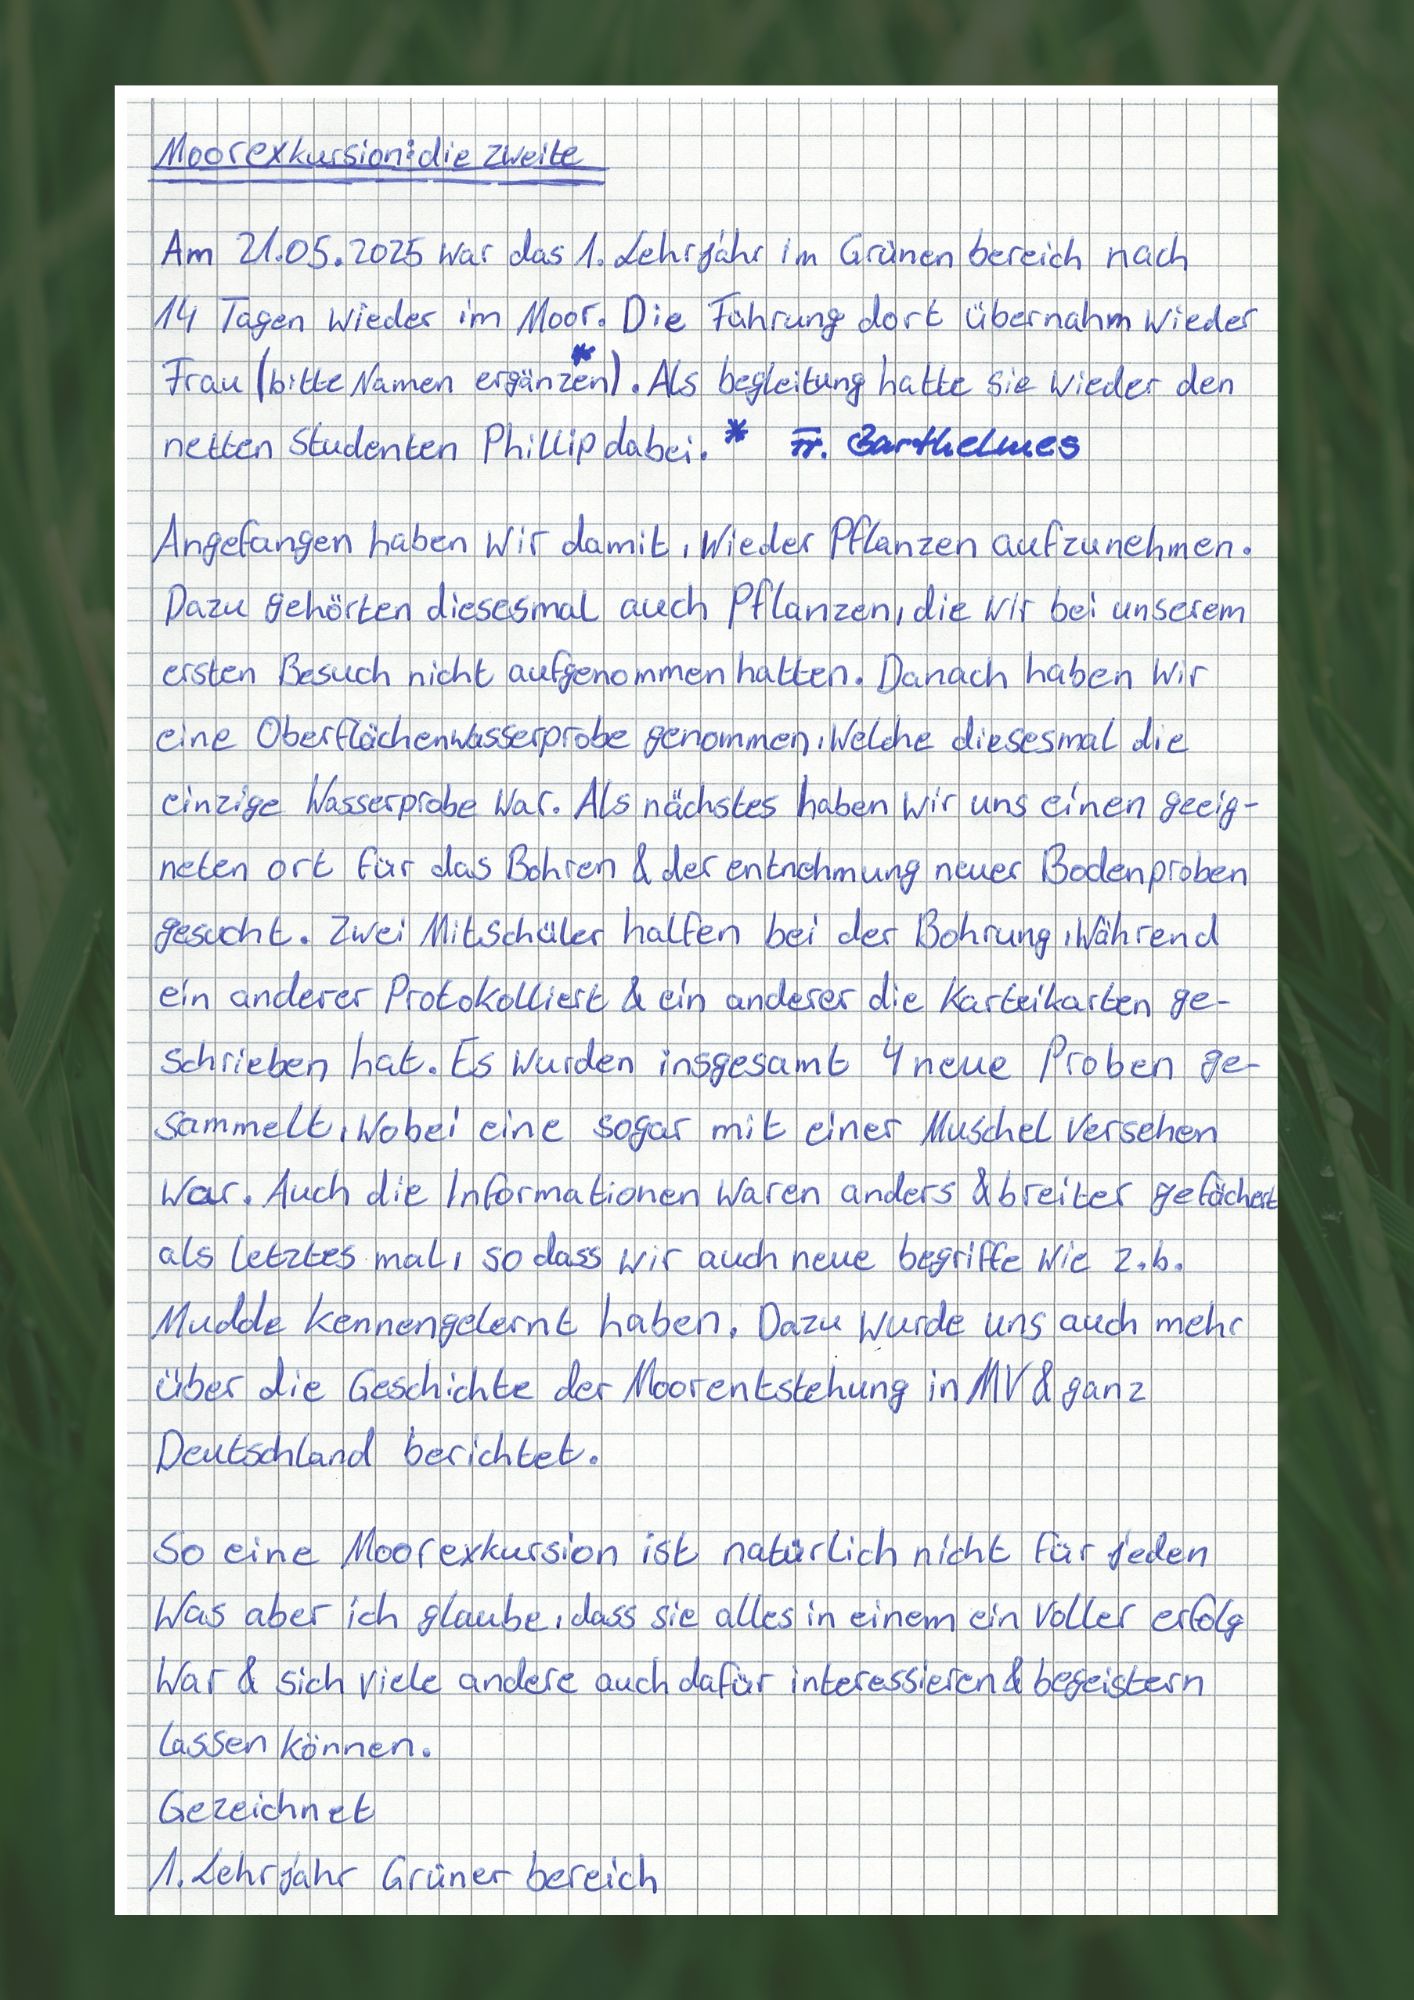 Moorexkursion: die zweite
Am 21.05.2025 war das 1. Lehrjahr im Grünen bereich nach
14 Tagen wieder im Moor. Die Führung dort übernahm wieder
Frau (bitte Namen ergänzen)*. Als begleitung hatte sie wieder den
netten Studenten Phillip dabei. * Fr. Barthelmes
Angefangen haben wir damit, wieder Pflanzen aufzunehmen.
Dazu gehörten diesesmal auch Pflanzen, die wir bei unserem
ersten Besuch nicht aufgenommen hatten. Danach haben wir
eine Oberflächenwasserprobe genommen, welche diesesmal die
einzige Wasserprobe war. Als nächstes haben wir uns einen geeig-
neten ort für das Bohren & der entnehmung neuer Bodenproben
gesucht. Zwei Mitschüler halfen bei der Bohrung, während
ein anderer Protokolliert & ein anderer die Karteikarten ge-
schrieben hat. Es wurden insgesamt 4 neue Proben ge-
sammelt, wobei eine sogar mit einer Muschel versehen
war. Auch die Informationen waren anders & breiter gefächert
als letztes mal, so dass wir auch neue begriffe wie z.b.
Mudde kennengelernt haben. Dazu wurde uns auch mehr
über die Geschichte der Moorentstehung in MV & ganz
Deutschland berichtet.
So eine Moorexkursion ist natürlich nicht für jeden
was aber ich glaube, dass sie alles in einem ein voller erfolg
war & sich viele andere auch dafür interessieren & begeistern
lassen können.
Gezeichnet
1. Lehrjahr Grüner bereich